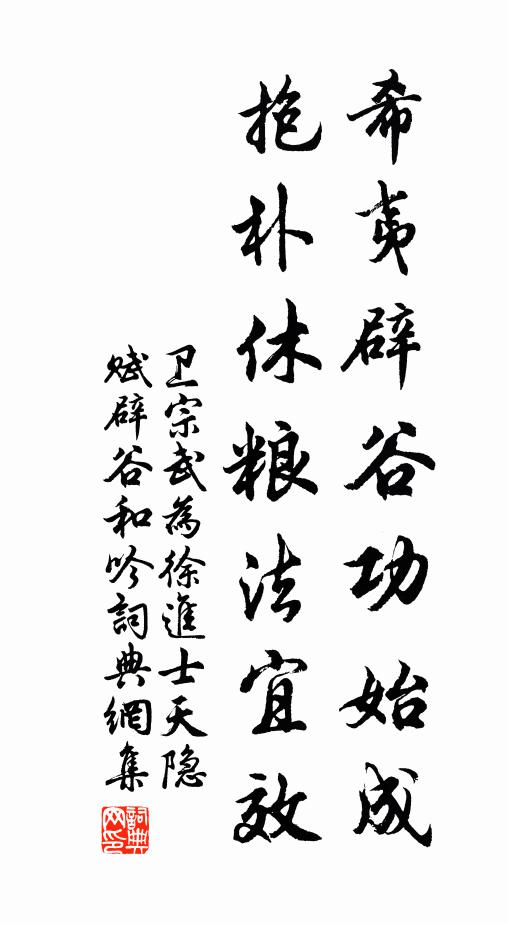 希夷辟谷功始成
抱朴休粮法宜效
卫宗武為徐進士天隐
赋辟谷和吟詞典網集
詞典
网印